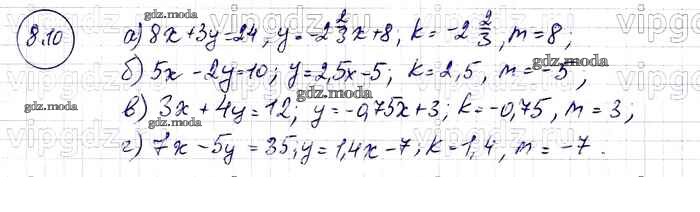 8.10
а) 8x + 3y = 24; y = -2 2/3 x + 8, k = -2 2/3, m = 8;
б) 5x - 2y = 10; y = 2,5x - 5; k = 2,5, m = -5;
в) 3x + 4y = 12; y = -0,75x + 3; k = -0,75, m = 3;
г) 7x - 5y = 35; y = 1,4x - 7; k = 1,4, m = -7.
gdz.moda
gdz.moda
gdz.moda
gdz.moda
gdz.moda
gdz.moda
gdz.moda
vipgdz
vipgdz
vipgdz